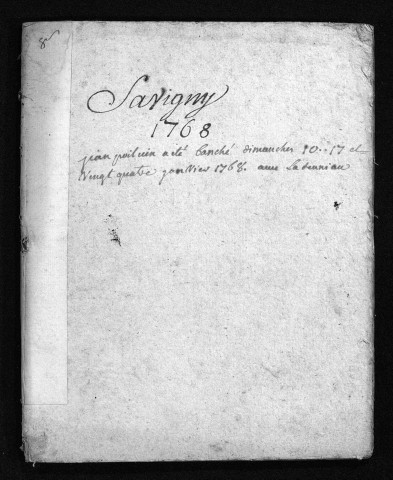 8
Savigny
1768
jean poitvin a été banché dimanches 10..17 et
Vingt quatre janvier 1768. avec